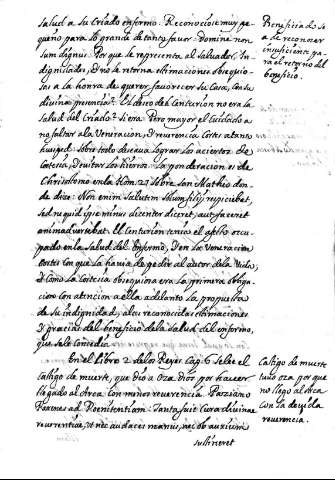 salud a su Criado enfermo. Reconociose muy pe-
queño para lo grande de tanto favor. Domine non
sum dignus. Porque se representa al Salvador, In-
dignidades, y no se retorna estimaciones obsequio-
sas a la honra de querer favorecer su Casa, con su
divina presencia? El deseo del Centurion no era la
salud del Criado? si era. Pero mayor el cuidado a
no faltar a la Veneracion, y reverencia
Sobre todo deseaua lograr los aciertos de
Cortesia, y euitar los hierros. La ponderacion es de
Chrisostomo en la Hom. 27 sobre San Matheo don-
de dice: Non enim salutem solum filij respiciebat,
sed ne quid ipse minus decenter diceret, aut faceret
animadvertebat. El Centurion tenia el afecto ocu-
pado en la salud del Enfermo, y en la Veneracion
cortes con que la hauia de pedir al autor de la Vida,
y como la cortecia obsequiosa era la primera obliga-
cion con atencion a ella adelanto la propuesta
de su indignidad, a las reconocidas estimaciones
y gracias del beneficio de la salud del enfermo,
que se le concedia.
En el Libro 2 de los Reyes Cap. 6 se lee el
castigo de muerte, que dio a Oza Dios por hauer
llegado al Arca con menor reverencia.
ad Poenitentiam: Tanta fuit Cura divinae
reverentiae, ut nec audaces manus, nec ob auxilium
sustineret
Beneficiado se
a de reconocer
insuficiente pa-
ra el retorno del
beneficio.
Castigo de muerte
tuuo Oza por que
no llego al Arca
con la deuida
reuerencia.